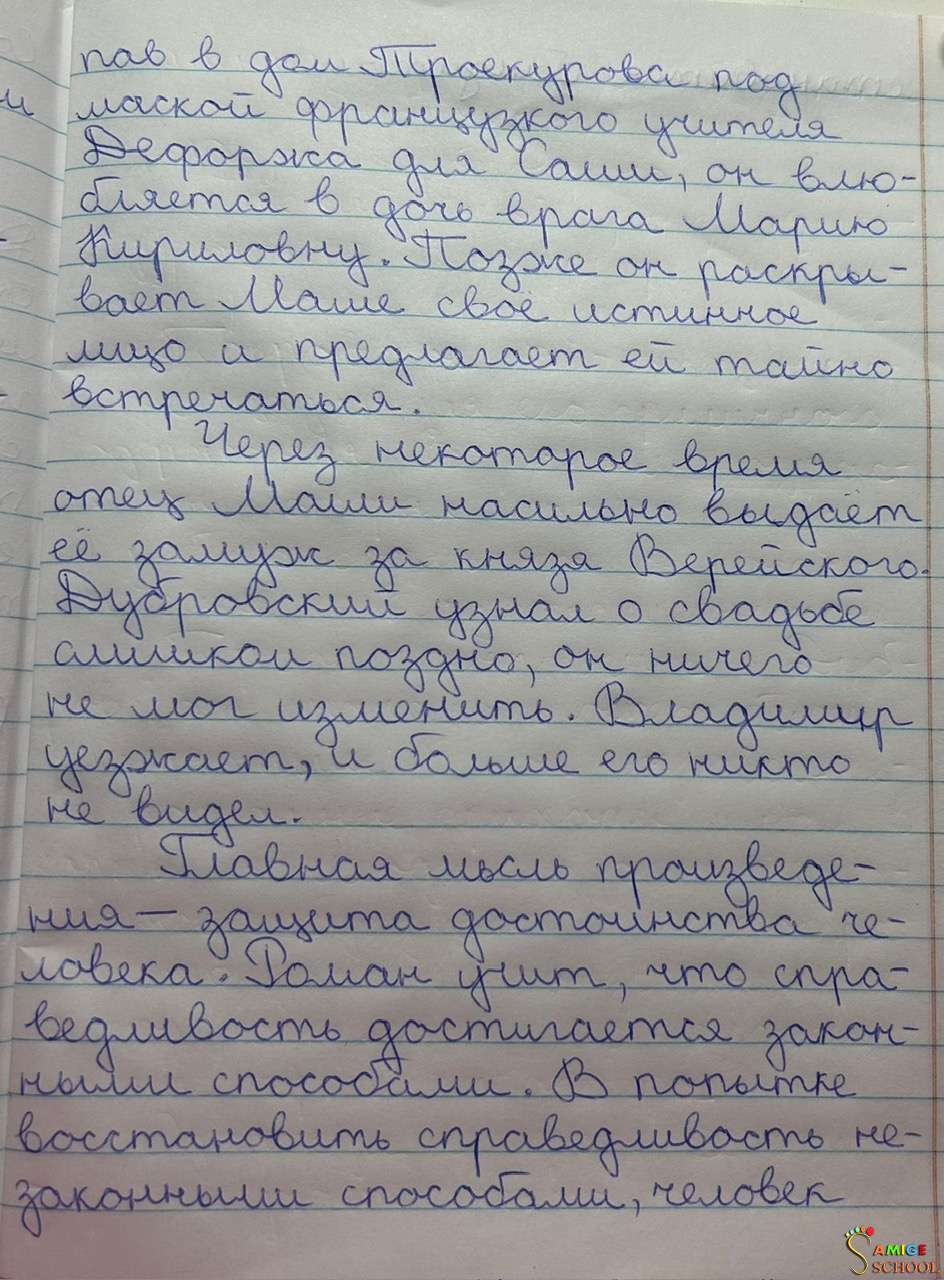 пав в дом Троекурова под
маской французского учителя
Дефоржа для Саши, он влю-
бляется в дочь врага Марию
Кириловну. Позже он раскры-
вает Маше своё истинное
лицо и предлагает ей тайно
встречаться.
Через некоторое время
отец Маши насильно выдаёт
её замуж за князя Верейского.
Дубровский узнал о свадьбе
слишком поздно, он ничего
не мог изменить. Владимир
уезжает, и больше его никто
не видел.
Главная мысль произведе-
ния — защита достоинства че-
ловека. Роман учит, что спра-
ведливость достигается закон-
ными способами. В попытке
восстановить справедливость не-
законными способами, человек
SAMIGE
SCHOOL